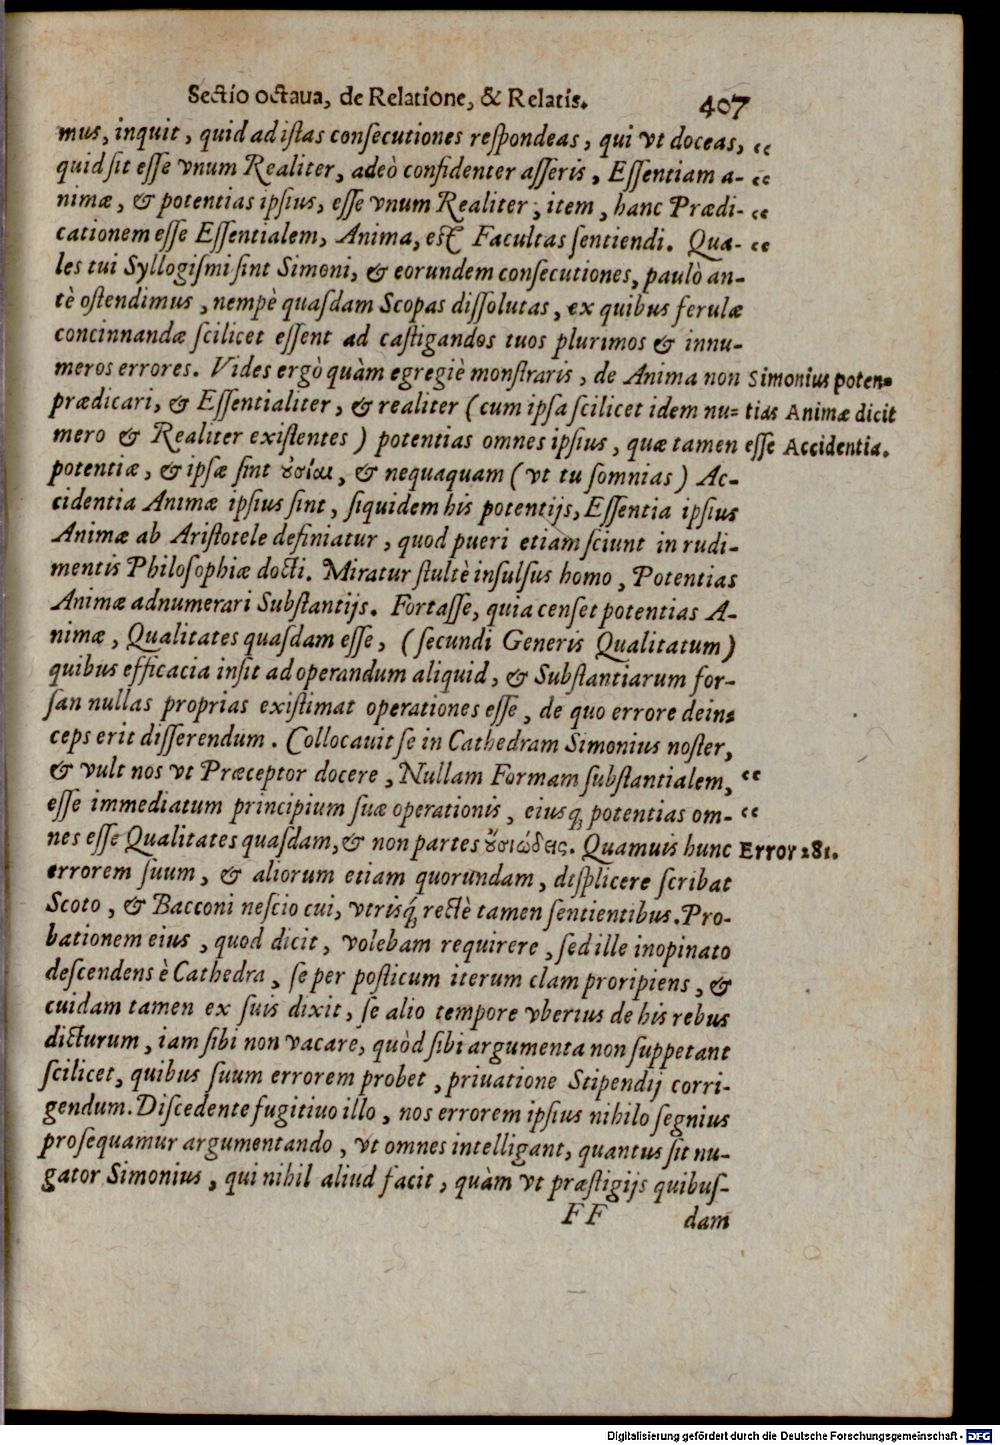 Sectio octaua, de Relatione, & Relatis. 407
mus, inquit, quid ad istas consecutiones respondeas, qui vt doceas, “
quid sit esse vnum Realiter, adeò confidenter asseris, Essentiam a- “
nimæ, & potentias ipsius, esse vnum Realiter, item, hanc Prædi- “
cationem esse Essentialem, Anima, est Facultas sentiendi. Qua- “
les tui Syllogismi sint Simoni, & eorundem consecutiones, paulò an-
tè ostendimus, nempè quasdam Scopas dissolutas, ex quibus ferulæ
concinnandæ scilicet essent ad castigandos tuos plurimos & innu-
meros errores. Vides ergò quàm egregiè monstraris, de Anima non
prædicari, & Essentialiter, & realiter (cum ipsa scilicet idem nu=
mero & Realiter existentes) potentias omnes ipsius, quæ tamen
Simonius poten=
tias Animæ dicit
esse Accidentia.
potentiæ, & ipsæ sint ȣ̓σίαι, & nequaquam (vt tu somnias) Ac-
cidentia Animæ ipsius sint, siquidem his potentijs, Essentia ipsius
Animæ ab Aristotele definiatur, quod pueri etiam sciunt in rudi-
mentis Philosophiæ docti. Miratur stultè insulsus homo, Potentias
Animæ adnumerari Substantijs. Fortasse, quia censet potentias A-
nimæ, Qualitates quasdam esse, (secundi Generis Qualitatum)
quibus efficacia insit ad operandum aliquid, & Substantiarum for-
san nullas proprias existimat operationes esse, de quo errore dein=
ceps erit disserendum. Collocauit se in Cathedram Simonius noster,
& vult nos vt Præceptor docere, Nullam Formam substantialem, “
esse immediatum principium suæ operationis, eiusq́; potentias om- “
nes esse Qualitates quasdam, & non partes ȣ̓σιώδεις. Quamuis hunc
Error 281.
errorem suum, & aliorum etiam quorundam, displicere scribat
Scoto, & Bacconi nescio cui, vtrisq́; rectè tamen sentientibus. Pro-
bationem eius, quod dicit, volebam requirere, sed ille inopinato
descendens è Cathedra, se per posticum iterum clam proripiens, &
cuidam tamen ex suis dixit, se alio tempore vberius de his rebus
dicturum, iam sibi non vacare, quòd sibi argumenta non suppetant
scilicet, quibus suum errorem probet, priuatione Stipendij corri-
gendum. Discedente fugitiuo illo, nos errorem ipsius nihilo segnius
prosequamur argumentando, vt omnes intelligant, quantus sit nu-
gator Simonius, qui nihil aliud facit, quàm vt præstigijs quibus-
FF dam
Digitalisierung gefördert durch die Deutsche Forschungsgemeinschaft - DFG